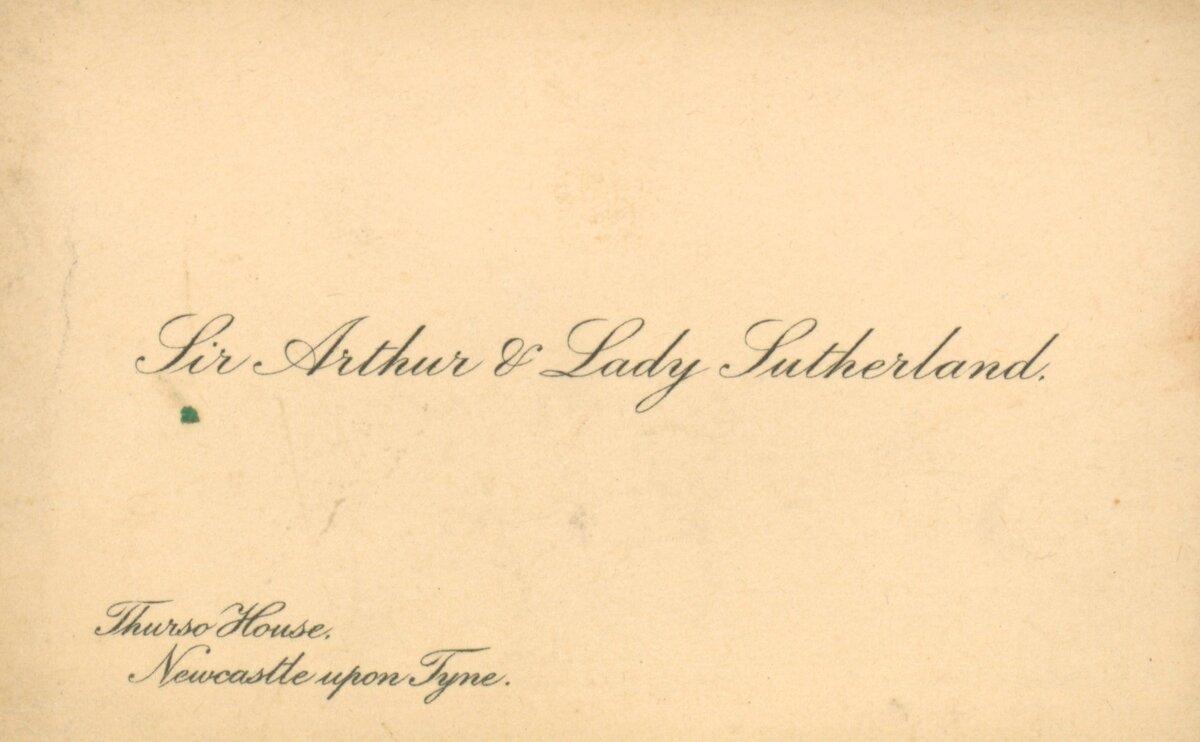 Sir Arthur & Lady Sutherland.
Thurso House.
Newcastle upon Tyne.